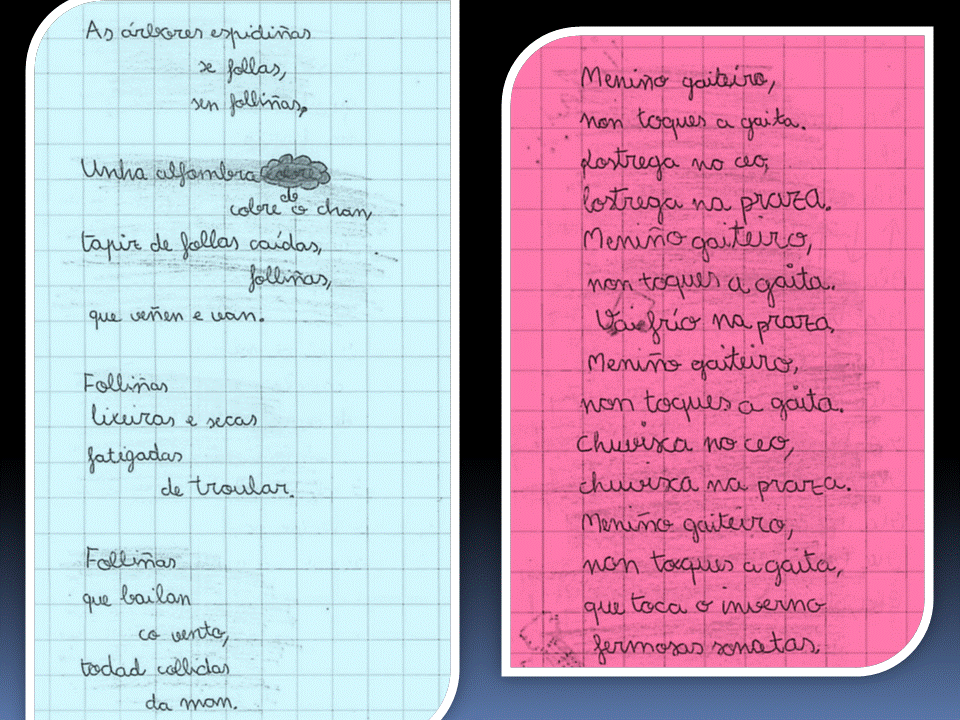 As árbores espidiñas
se follas,
sen folliñas,
Unha alfombra
de
cobre o chan,
tapiz de follas caídas,
folliñas,
que veñen e van.
Folliñas
lixeiras e secas
fatigadas
de troular.
Folliñas
que bailan
co vento,
todad collidas
da man.
Meniño gaiteiro,
non toques a gaita.
Lostrega no ceo,
lostrega na praza.
Meniño gaiteiro,
non toques a gaita.
Vai frío na praza,
Meniño gaiteiro,
non toques a gaita.
chuvisca no ceo,
chuvisca na praza.
Meniño gaiteiro,
non toques a gaita,
que toca o inverno
fermosas sonatas.